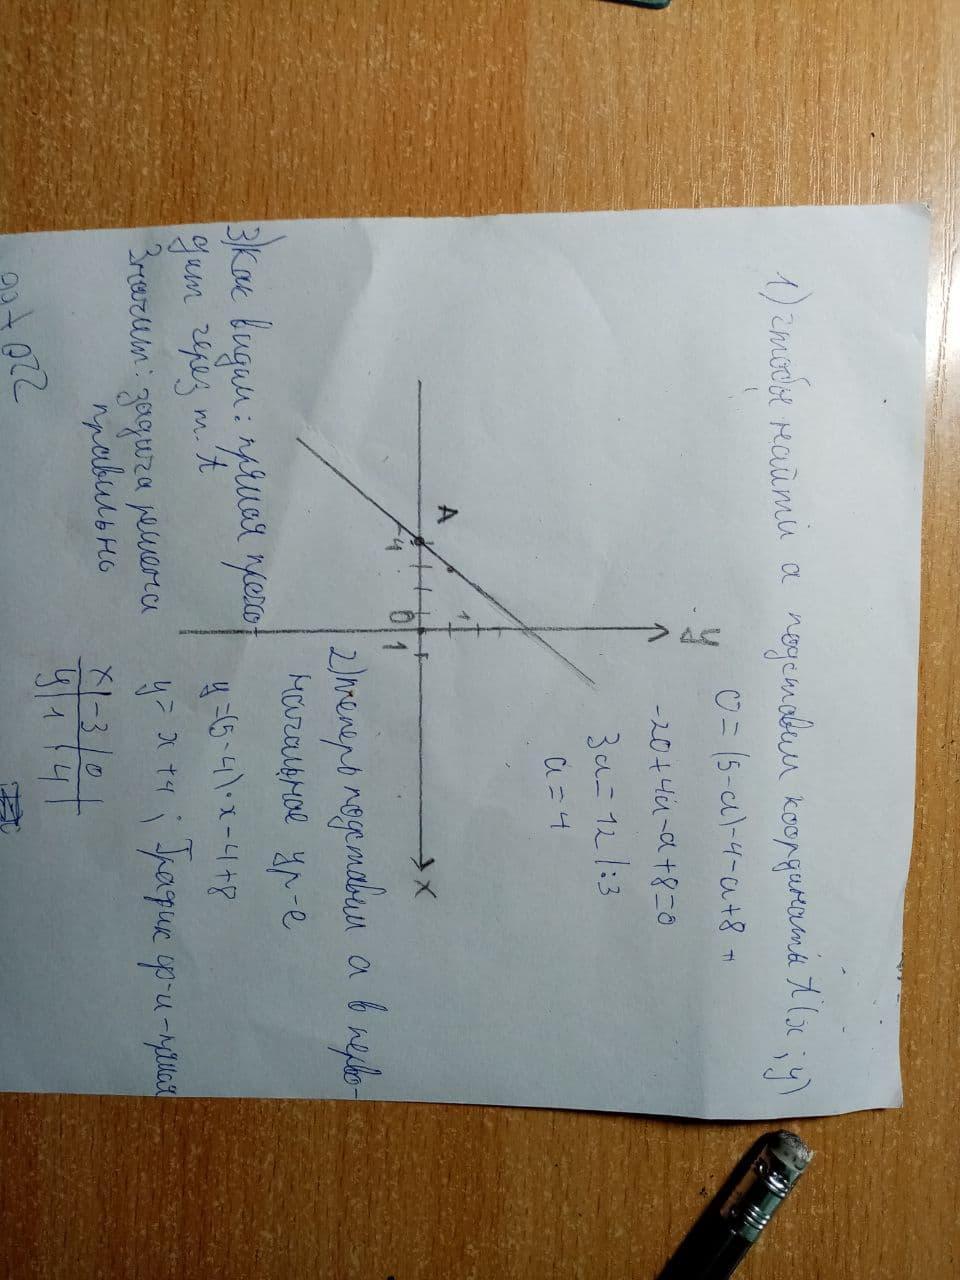 1) чтобы найти а подставим координаты А(х ; у)
0 = (5-а)-4-а+8
-20+4а-а+8=0
3а=12 |:3
а=4
у
А
1
-4
0
1
х
2) теперь подставим а в перво-
начальное ур-е
у=(5-4)·х-4+8
у= х+4 ; График ф-и-прямая
х | -3 | 0
у | 1 | 4
3) Как видим: прямая прохо-
дит через т. А
Значит: задача решена
правильно